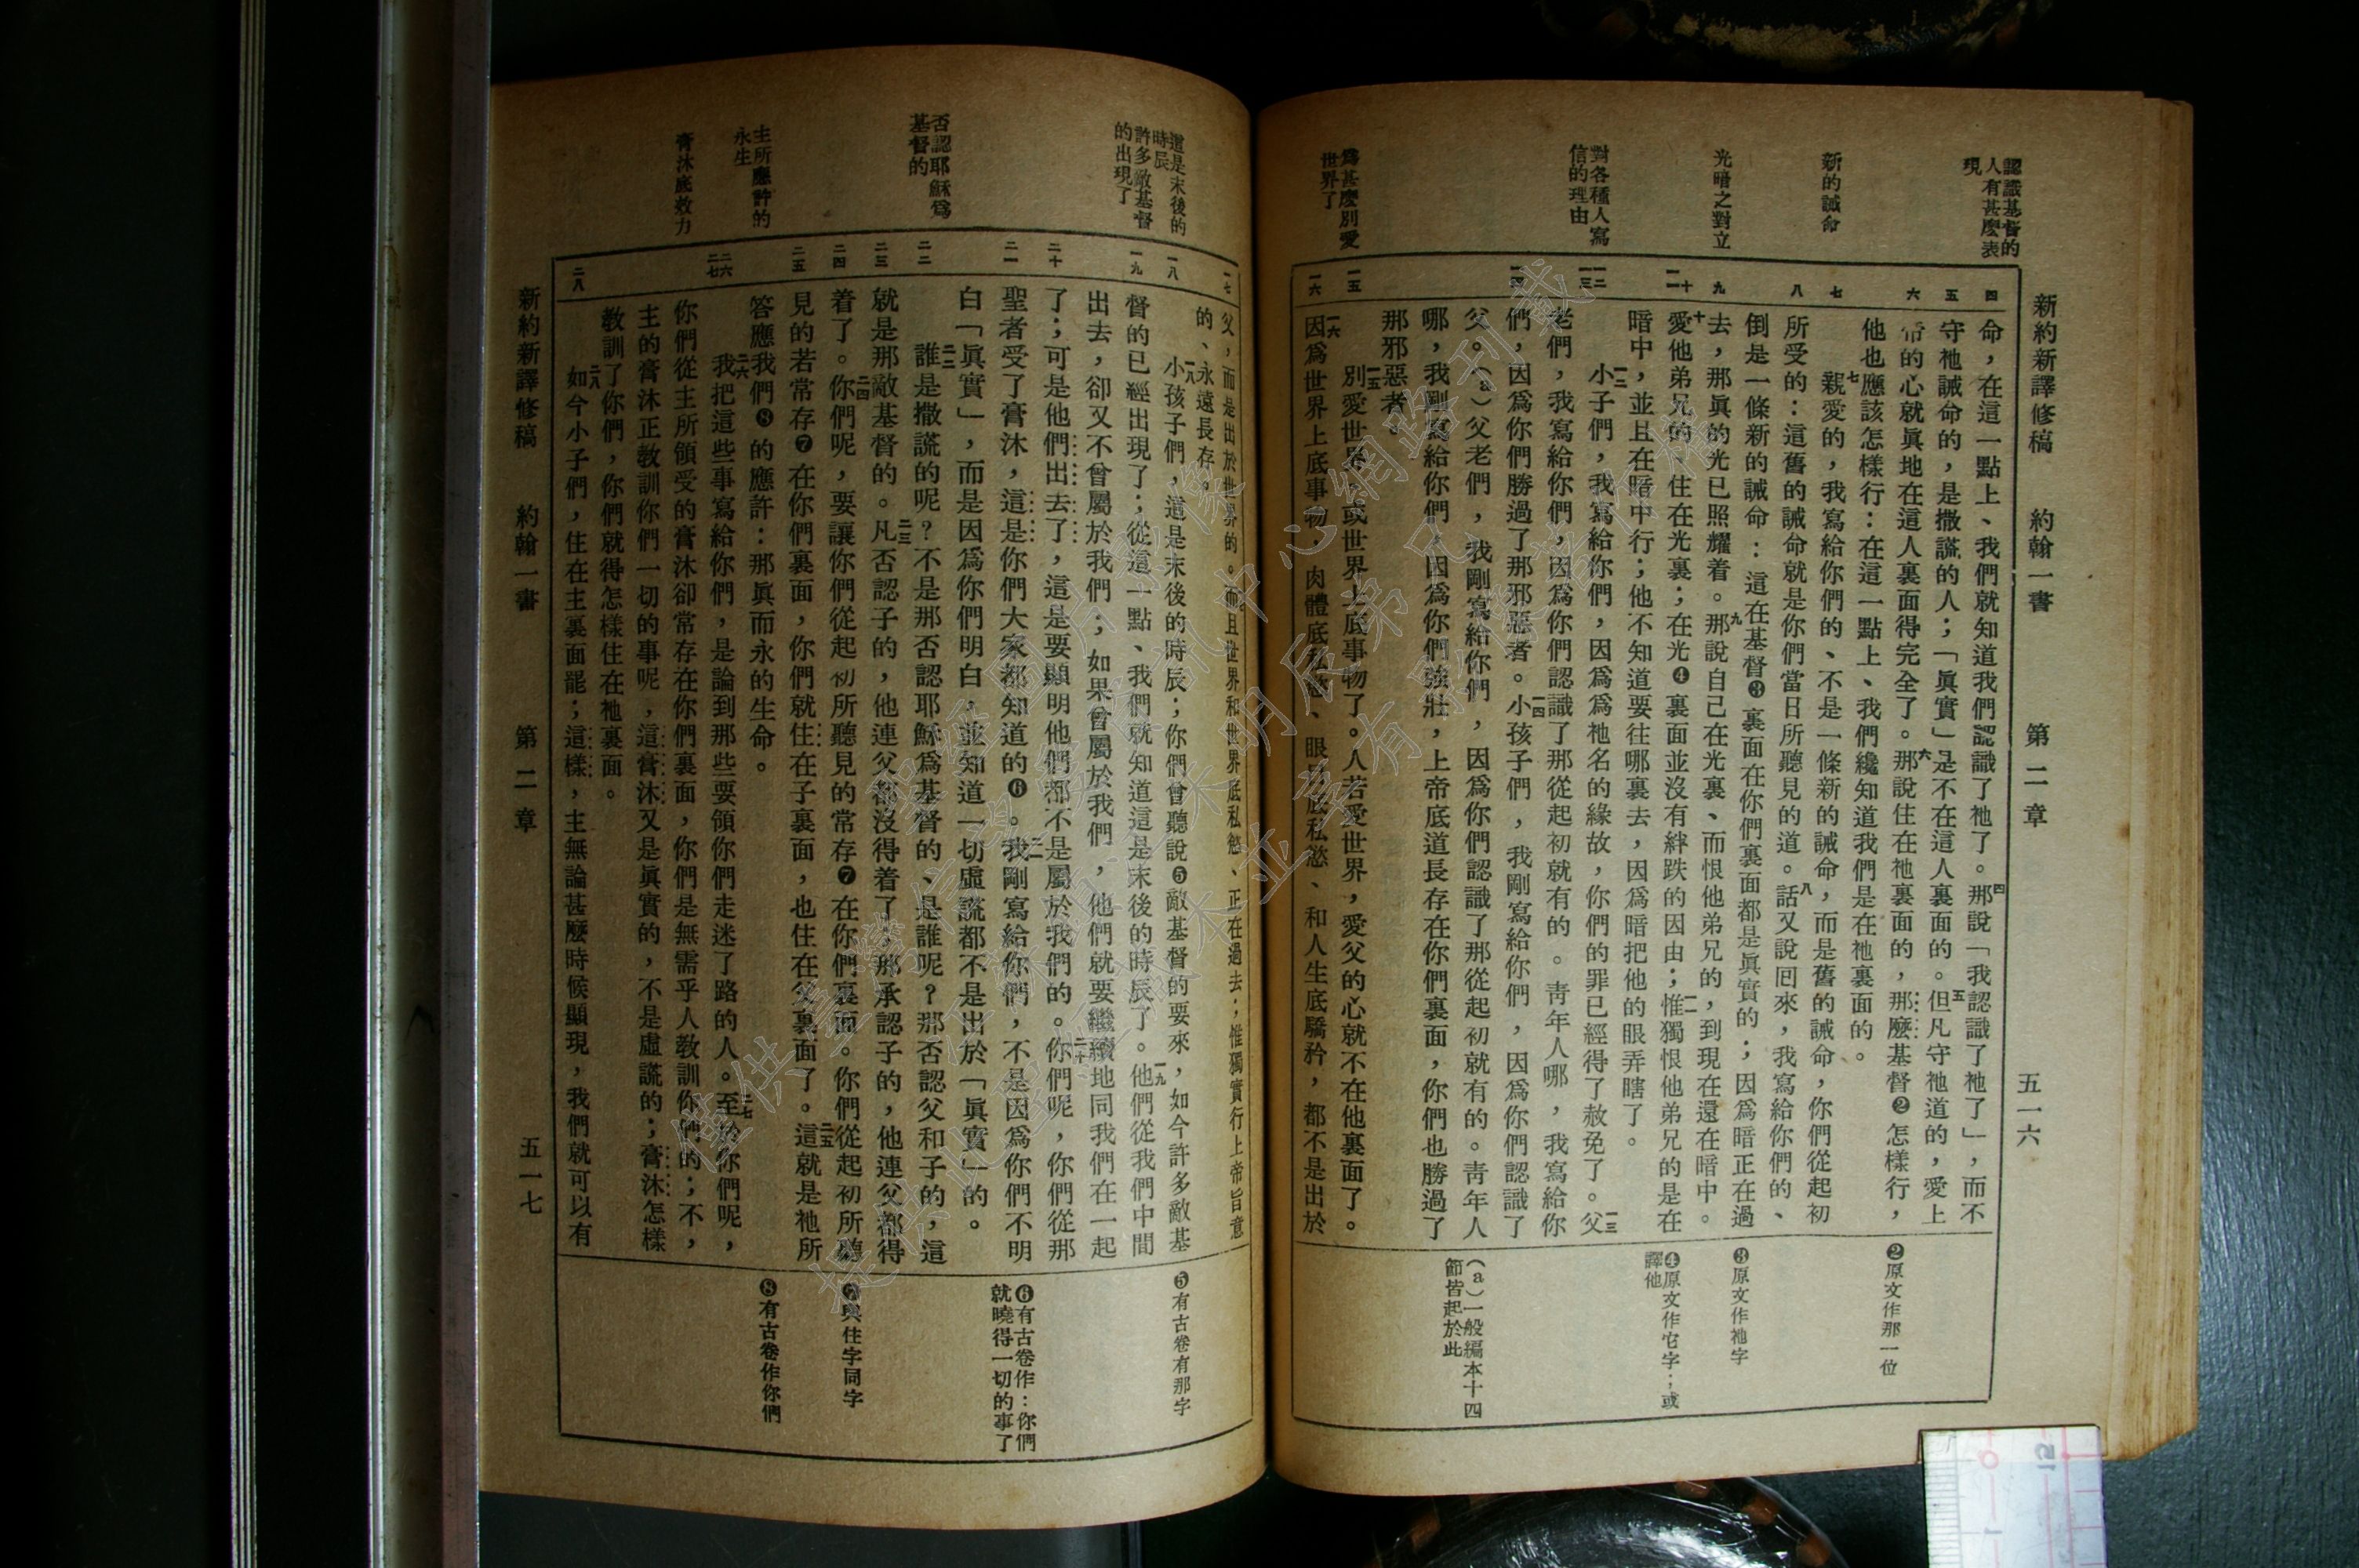 新約新譯修稿 約翰一書 第二章 五一六
認識基督的
人有甚麼表
現
新的誡命
光暗之對立
對各種人寫
信的理由
為甚麼別愛
世界了
四
五
六
七
八
九
十
一一
一二
一三
一四
一五
一六
命，在這一點上、我們就知道我們認識了祂了。四那說「我認識了祂了」，而不
守祂誡命的，是撒謊的人；「真實」是不在這人裏面的。五但凡守祂道的，愛上
帝的心就真地在這人裏面得完全了。六那說住在祂裏面的，那麼基督❷怎樣行，
他也應該怎樣行：在這一點上、我們纔知道我們是在祂裏面的。
七親愛的，我寫給你們的、不是一條新的誡命，而是舊的誡命，你們從起初
所受的：這舊的誡命就是你們當日所聽見的道。八話又說回來，我寫給你們的、
倒是一條新的誡命：這在基督❸裏面在你們裏面都是真實的；因為暗正在過
去，那真的光已照耀着。九那說自己在光裏、而恨他弟兄的，到現在還在暗中。
十愛他弟兄的、住在光裏；在光❹裏面並沒有絆跌的因由；一一惟獨恨他弟兄的是在
暗中，並且在暗中行；他不知道要往哪裏去，因為暗把他的眼弄瞎了。
一二小子們，我寫給你們，因為為祂名的緣故，你們的罪已經得了赦免了。一三父
老們，我寫給你們，因為你們認識了那從起初就有的。青年人哪，我寫給你
們，因為你們勝過了那邪惡者。一四小孩子們，我剛寫給你們，因為你們認識了
父。(a)父老們，我剛寫給你們，因為你們認識了那從起初就有的。青年人
哪，我剛寫給你們，因為你們強壯，上帝底道長存在你們裏面，你們也勝過了
那邪惡者。
一五別愛世界、或世界上底事物了。人若愛世界，愛父的心就不在他裏面了。
一六因為世界上底事物，肉體底私慾、眼目底私慾、和人生底驕矜，都不是出於
❷原文作那一位
❸原文作祂字
❹原文作它字；或
譯他
(a)一般編本十四
節皆起於此
這是末後的
時辰
許多敵基督
的出現了
否認耶穌為
基督的
主所應許的
永生
膏沐底效力
一七
一八
一九
二十
二一
二二
二三
二四
二五
二六
二七
二八
父，而是出於世界的。而且世界和世界底私慾、正在過去；惟獨實行上帝旨意
的、永遠長存。
一八小孩子們，這是末後的時辰；你們曾聽說❺敵基督的要來，如今許多敵基
督的已經出現了；從這一點、我們就知道這是末後的時辰了。一九他們從我們中間
出去，卻又不曾屬於我們；如果曾屬於我們，他們就要繼續地同我們在一起
了；可是他們出去了，這是要顯明他們都不是屬於我們的。二十你們呢，你們從那
聖者受了膏沐，這是你們大家都知道的❻。二一我剛寫給你們，不是因為你們不明
白「真實」，而是因為你們明白，並知道一切虛謊都不是出於「真實」的。
二二誰是撒謊的呢？不是那否認耶穌為基督的、是誰呢？那否認父和子的，這
就是那敵基督的。二三凡否認子的，他連父都沒得着了；那承認子的，他連父都得
着了。二四你們呢，要讓你們從起初所聽見的常存❼在你們裏面。你們從起初所聽
見的若常存❼在你們裏面，你們就住在子裏面，也住在父裏面了。二五這就是祂所
答應我們❽的應許：那真而永的生命。
二六我把這些事寫給你們，是論到那些要領你們走迷了路的人。二七至於你們呢，
你們從主所領受的膏沐卻常存在你們裏面，你們是無需乎人教訓你們的；不，
主的膏沐正教訓你們一切的事呢，這膏沐又是真實的，不是虛謊的；膏沐怎樣
教訓了你們，你們就得怎樣住在祂裏面。
二八如今小子們，住在主裏面罷；這樣，主無論甚麼時候顯現，我們就可以有
❺有古卷有那字
❻有古卷作：你們
就曉得一切的事了
❼與住字同字
❽有古卷作你們
新約新譯修稿 約翰一書 第二章 五一七